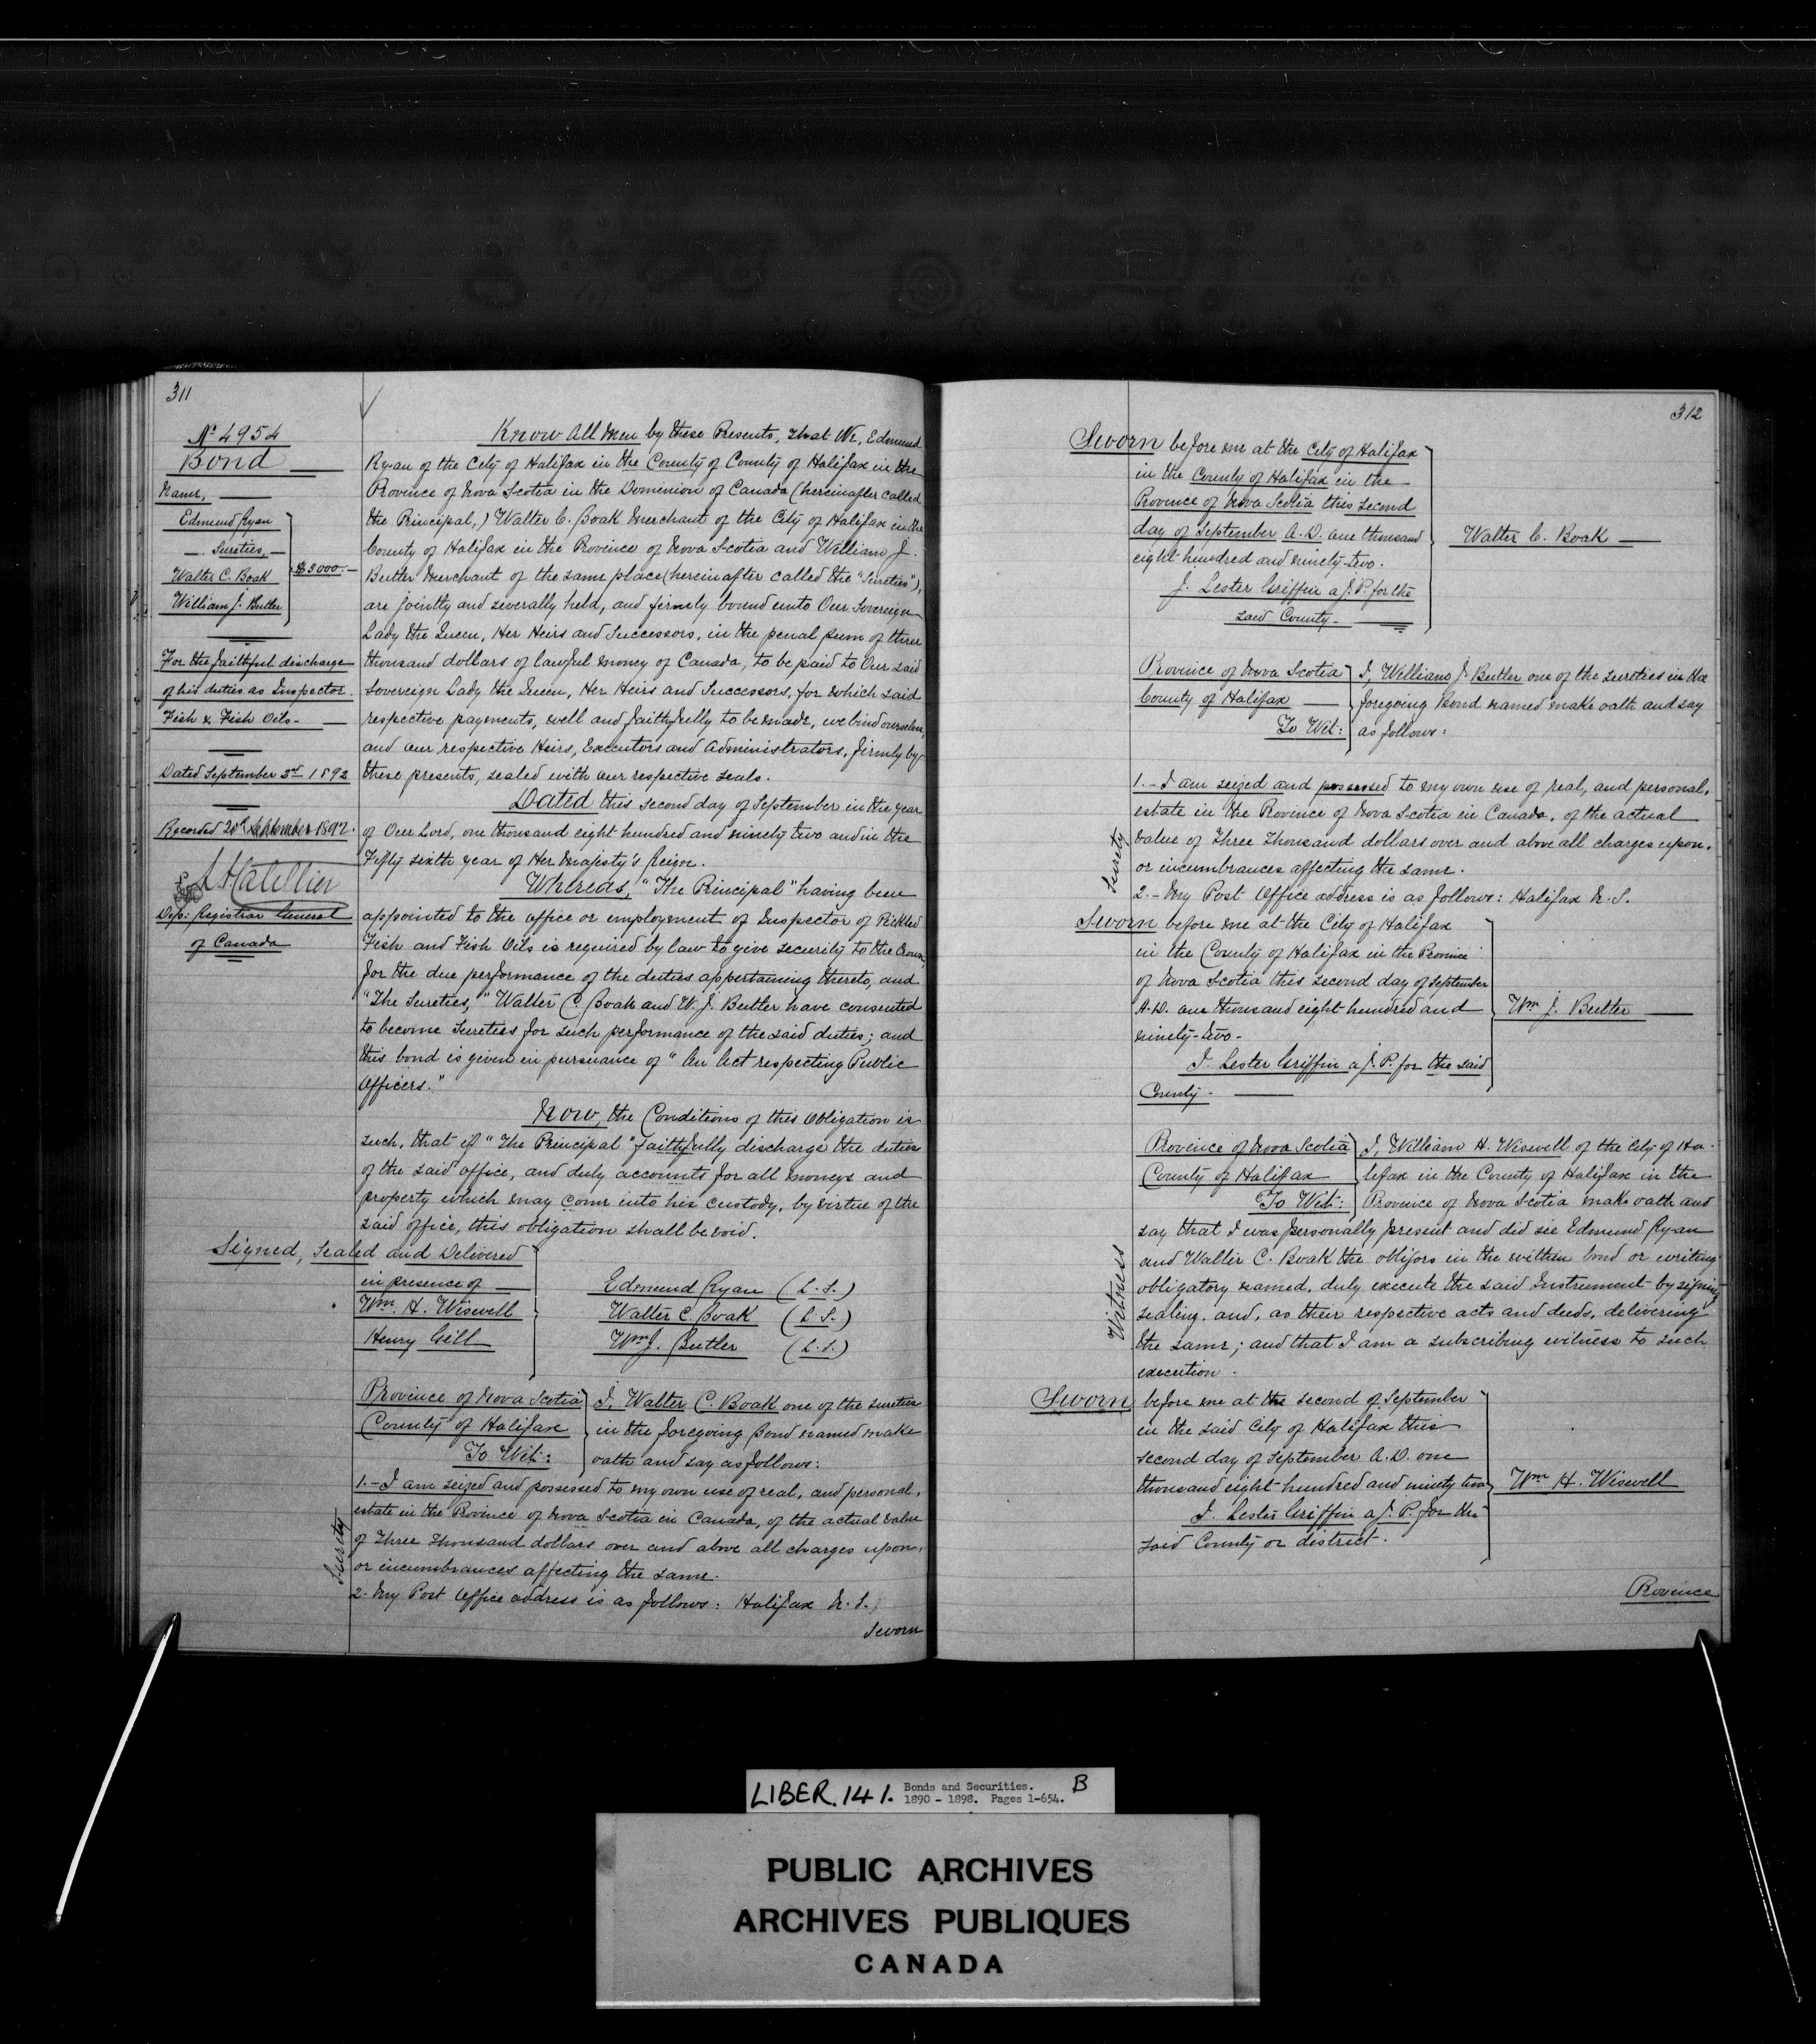 311
No 4954
Bond
Name,
Edmund Ryan
Sureties,
Walter C. Boak
$3000.-
William J. Butler
For the faithful discharge
of his duties as Inspector
Fish & Fish Oils-
Dated September 2nd 1892
Recorded 20th September 1892.
Dep: Registrar General
of Canada
Know All Men by these Presents, that We, Edmund
Ryan of the City of Halifax in the County of County of Halifax in the
Province of Nova Scotia in the Dominion of Canada (hereinafter called
the Principal,) Walter C. Boak Merchant of the City of Halifax in the
County of Halifax in the Province of Nova Scotia and William J.
Butler Merchant of the same place (hereinafter called the "Sureties"),
are jointly and severally held, and firmly bound unto Our Sovereign
Lady the Queen, Her Heirs and Successors, in the penal sum of three
thousand dollars of lawful money of Canada, to be paid to Our said
Sovereign Lady the Queen, Her Heirs and Successors, for which said
respective payments, well and faithfully to be made, we bind ourselves,
and our respective Heirs, Executors and Administrators, firmly by
these presents, sealed with our respective seals.
Dated this second day of September in the year
of Our Lord, one thousand eight hundred and ninety two and in the
Fifty sixth year of Her Majesty's Reign.
Whereas, "The Principal" having been
appointed to the office or employment of Inspector of Pickled
Fish and Fish Oils is required by law to give security to the Crown,
for the due performance of the duties appertaining thereto, and
"The Sureties," Walter C. Boak and W. J. Butler have consented
to become Sureties for such performance of the said duties; and
this bond is given in pursuance of "An Act respecting Public
Officers."
Now, the Conditions of this Obligation is
such, that if "The Principal" faithfully discharge the duties
of the said office, and duly accounts for all moneys and
property which may come into his custody, by virtue of the
said office, this obligation shall be void.
Signed, Sealed and Delivered
in presence of
Wm. H. Wiswell
Henry Gill
Edmund Ryan (L.S.)
Walter C. Boak (L.S.)
Wm J. Butler (L.S.)
Province of Nova Scotia
County of Halifax
To Wit:
I, Walter C. Boak one of the sureties
in the foregoing Bond named make
oath and say as follows:
Surety
1.- I am seized and possessed to my own use of real, and personal,
estate in the Province of Nova Scotia in Canada, of the actual value
of Three Thousand dollars over and above all charges upon,
or incumbrances affecting the same.
2. My Post Office address is as follows: Halifax N. S.
Sworn
312
Sworn before me at the City of Halifax
in the County of Halifax in the
Province of Nova Scotia this second
day of September A.D. one thousand
eight hundred and ninety-two.
J. Lester Griffin a J. P. for the
said County-
Walter C. Boak
Province of Nova Scotia
County of Halifax
To Wit:
I, William J. Butler one of the sureties in the
foregoing Bond named make oath and say
as follows:
Surety
1.- I am seized and possessed to my own use of real, and personal,
estate in the Province of Nova Scotia in Canada, of the actual
value of Three Thousand dollars over and above all charges upon,
or incumbrances affecting the same.
2.- My Post Office address is as follows: Halifax N. S.
Sworn before me at the City of Halifax
in the County of Halifax in the Province
of Nova Scotia this second day of September
A.D. one thousand eight hundred and
ninety-two-
J. Lester Griffin a J. P. for the said
County-
Wm J. Butler
Province of Nova Scotia
County of Halifax
To Wit:
I, William H. Wiswell of the City of Ha-
lifax in the County of Halifax in the
Province of Nova Scotia make oath and
Witness
say that I was personally present and did see Edmund Ryan
and Walter C. Boak the obligors in the within bond or writing
obligatory named, duly execute the said Instrument by signing
sealing, and, as their respective acts and deeds, delivering
the same; and that I am a subscribing witness to such
execution.
Sworn before me at the second of September
in the said City of Halifax this
second day of September A.D. one
thousand eight-hundred and ninety two
J. Lester Griffin a J. P. for the
said County or district.
Wm H. Wiswell
Province
LIBER. 141. Bonds and Securities. B
1890 - 1898. Pages 1-654.
PUBLIC ARCHIVES
ARCHIVES PUBLIQUES
CANADA